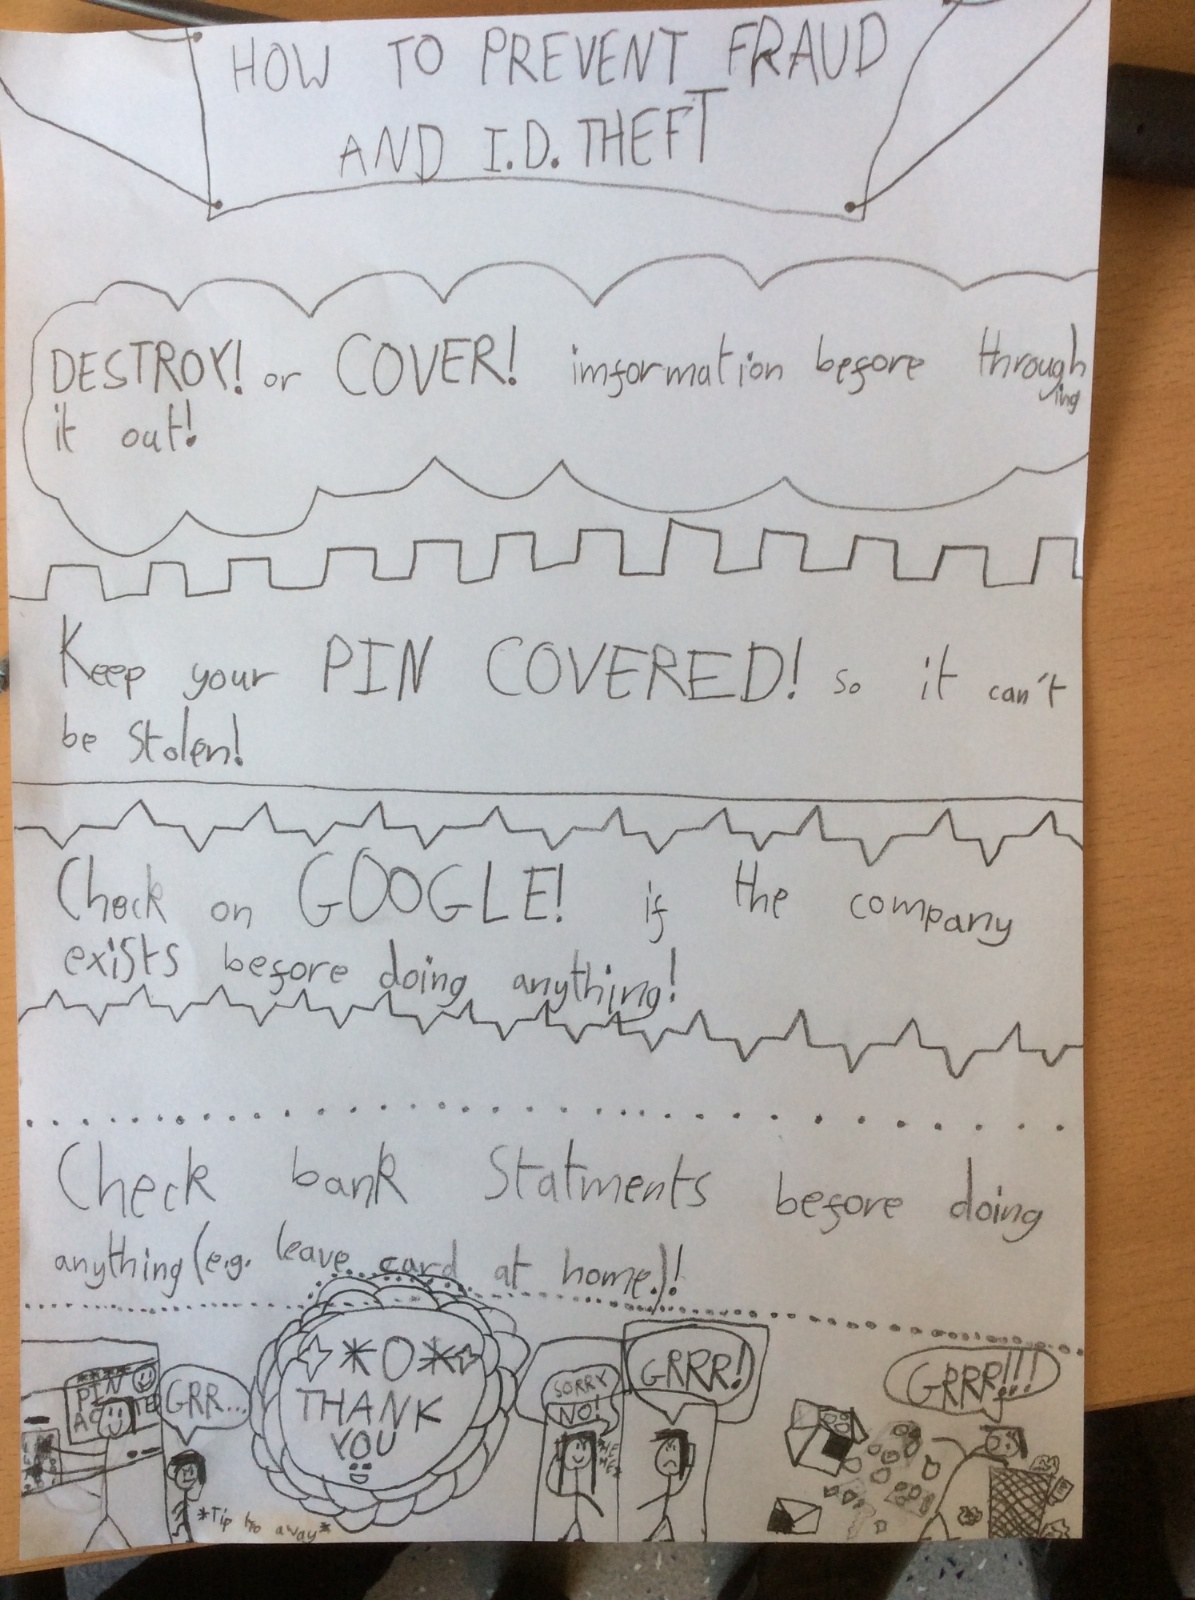 HOW TO PREVENT FRAUD
AND I.D. THEFT
DESTROY! or COVER! imformation before through
ing
it out!
Keep your PIN COVERED! so it can't
be stolen!
Check on GOOGLE! if the company
exists before doing anything!
Check bank Statments before doing
anything (e.g. leave card at home.)!
PIN
GRR...
*O*
THANK
YOU
SORRY
NO!
HE
HE
GRRR!
GRRR!!!
*Tip to away*